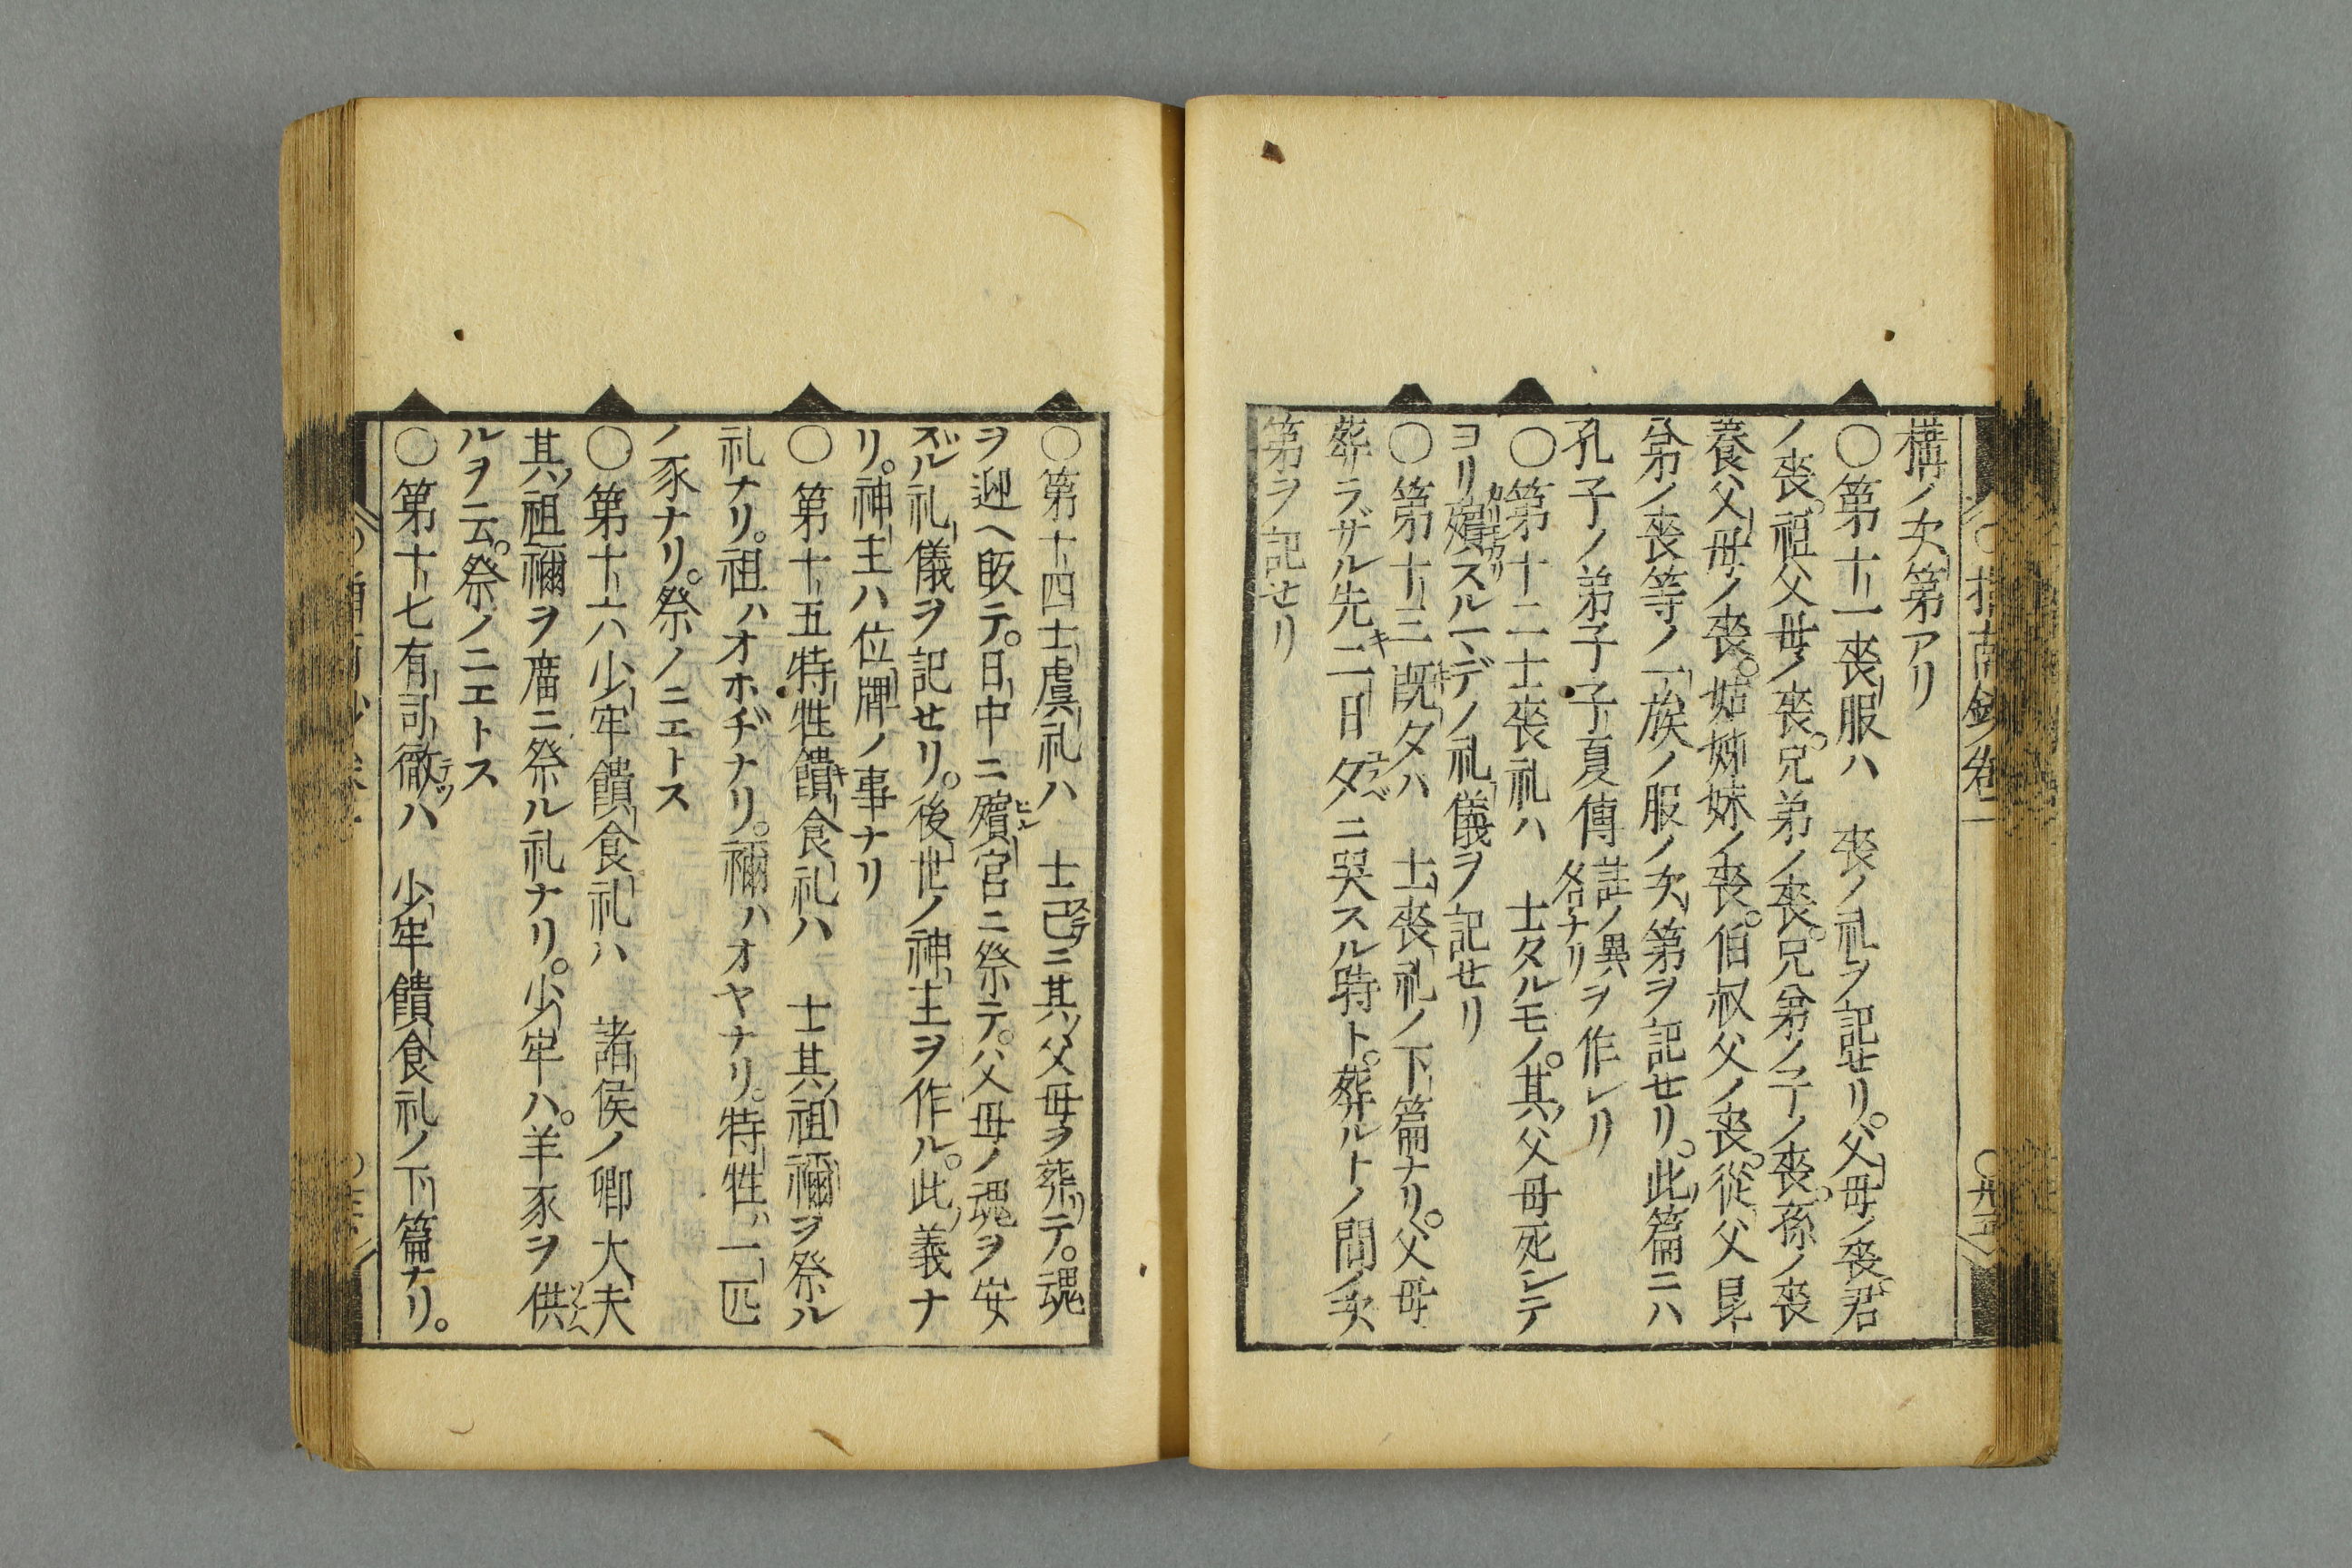 構ノ次第アリ
〇第十一喪服ハ 喪ノ礼ヲ記せリ。父母ノ喪。君
ノ喪。祖父母ノ喪。兄弟ノ喪。兄弟ノ子ノ喪。孫ノ喪
養父母ノ喪。姑姉妹ノ喪。伯叔父ノ喪。從父昆
弟ノ喪等ノ一族ノ服ノ次第ヲ記せリ。此篇ニハ
孔子ノ弟子子夏傳註ノ異ヲ作レリ
各ナリ
〇第十二士喪礼ハ 士タルモノ。其父母死シテ
ヨリ殯スルマデノ礼儀ヲ記せリ
〇第十三既夕ハ 士喪礼ノ下篇ナリ。父母
葬ラザル先キ二日夕ベニ哭スル時ト。葬ルトノ間ノ次
第ヲ記せリ
指南鈔卷二
〇第十四士虞礼ハ 士已ニ其父母ヲ葬テ。魂
ヲ迎ヘ皈テ。日中ニ殯宮ニ祭テ。父母ノ魂ヲ安
ズル礼儀ヲ記せリ。後世ノ神主ヲ作ル。此義ナ
リ。神主ハ位牌ノ事ナリ
〇第十五特牲饋食礼ハ 士其祖禰ヲ祭ル
礼ナリ。祖ハオホヂナリ。禰ハオヤナリ。特牲ハ一匹
ノ豕ナリ。祭ノニエトス
〇第十六少牢饋食礼ハ 諸侯ノ卿大夫
其祖禰ヲ廣ニ祭ル礼ナリ。少牢ハ。羊豕ヲ供
ルヲ云。祭ノニエトス
〇第十七有司徹ハ 少牢饋食礼ノ下篇ナリ。